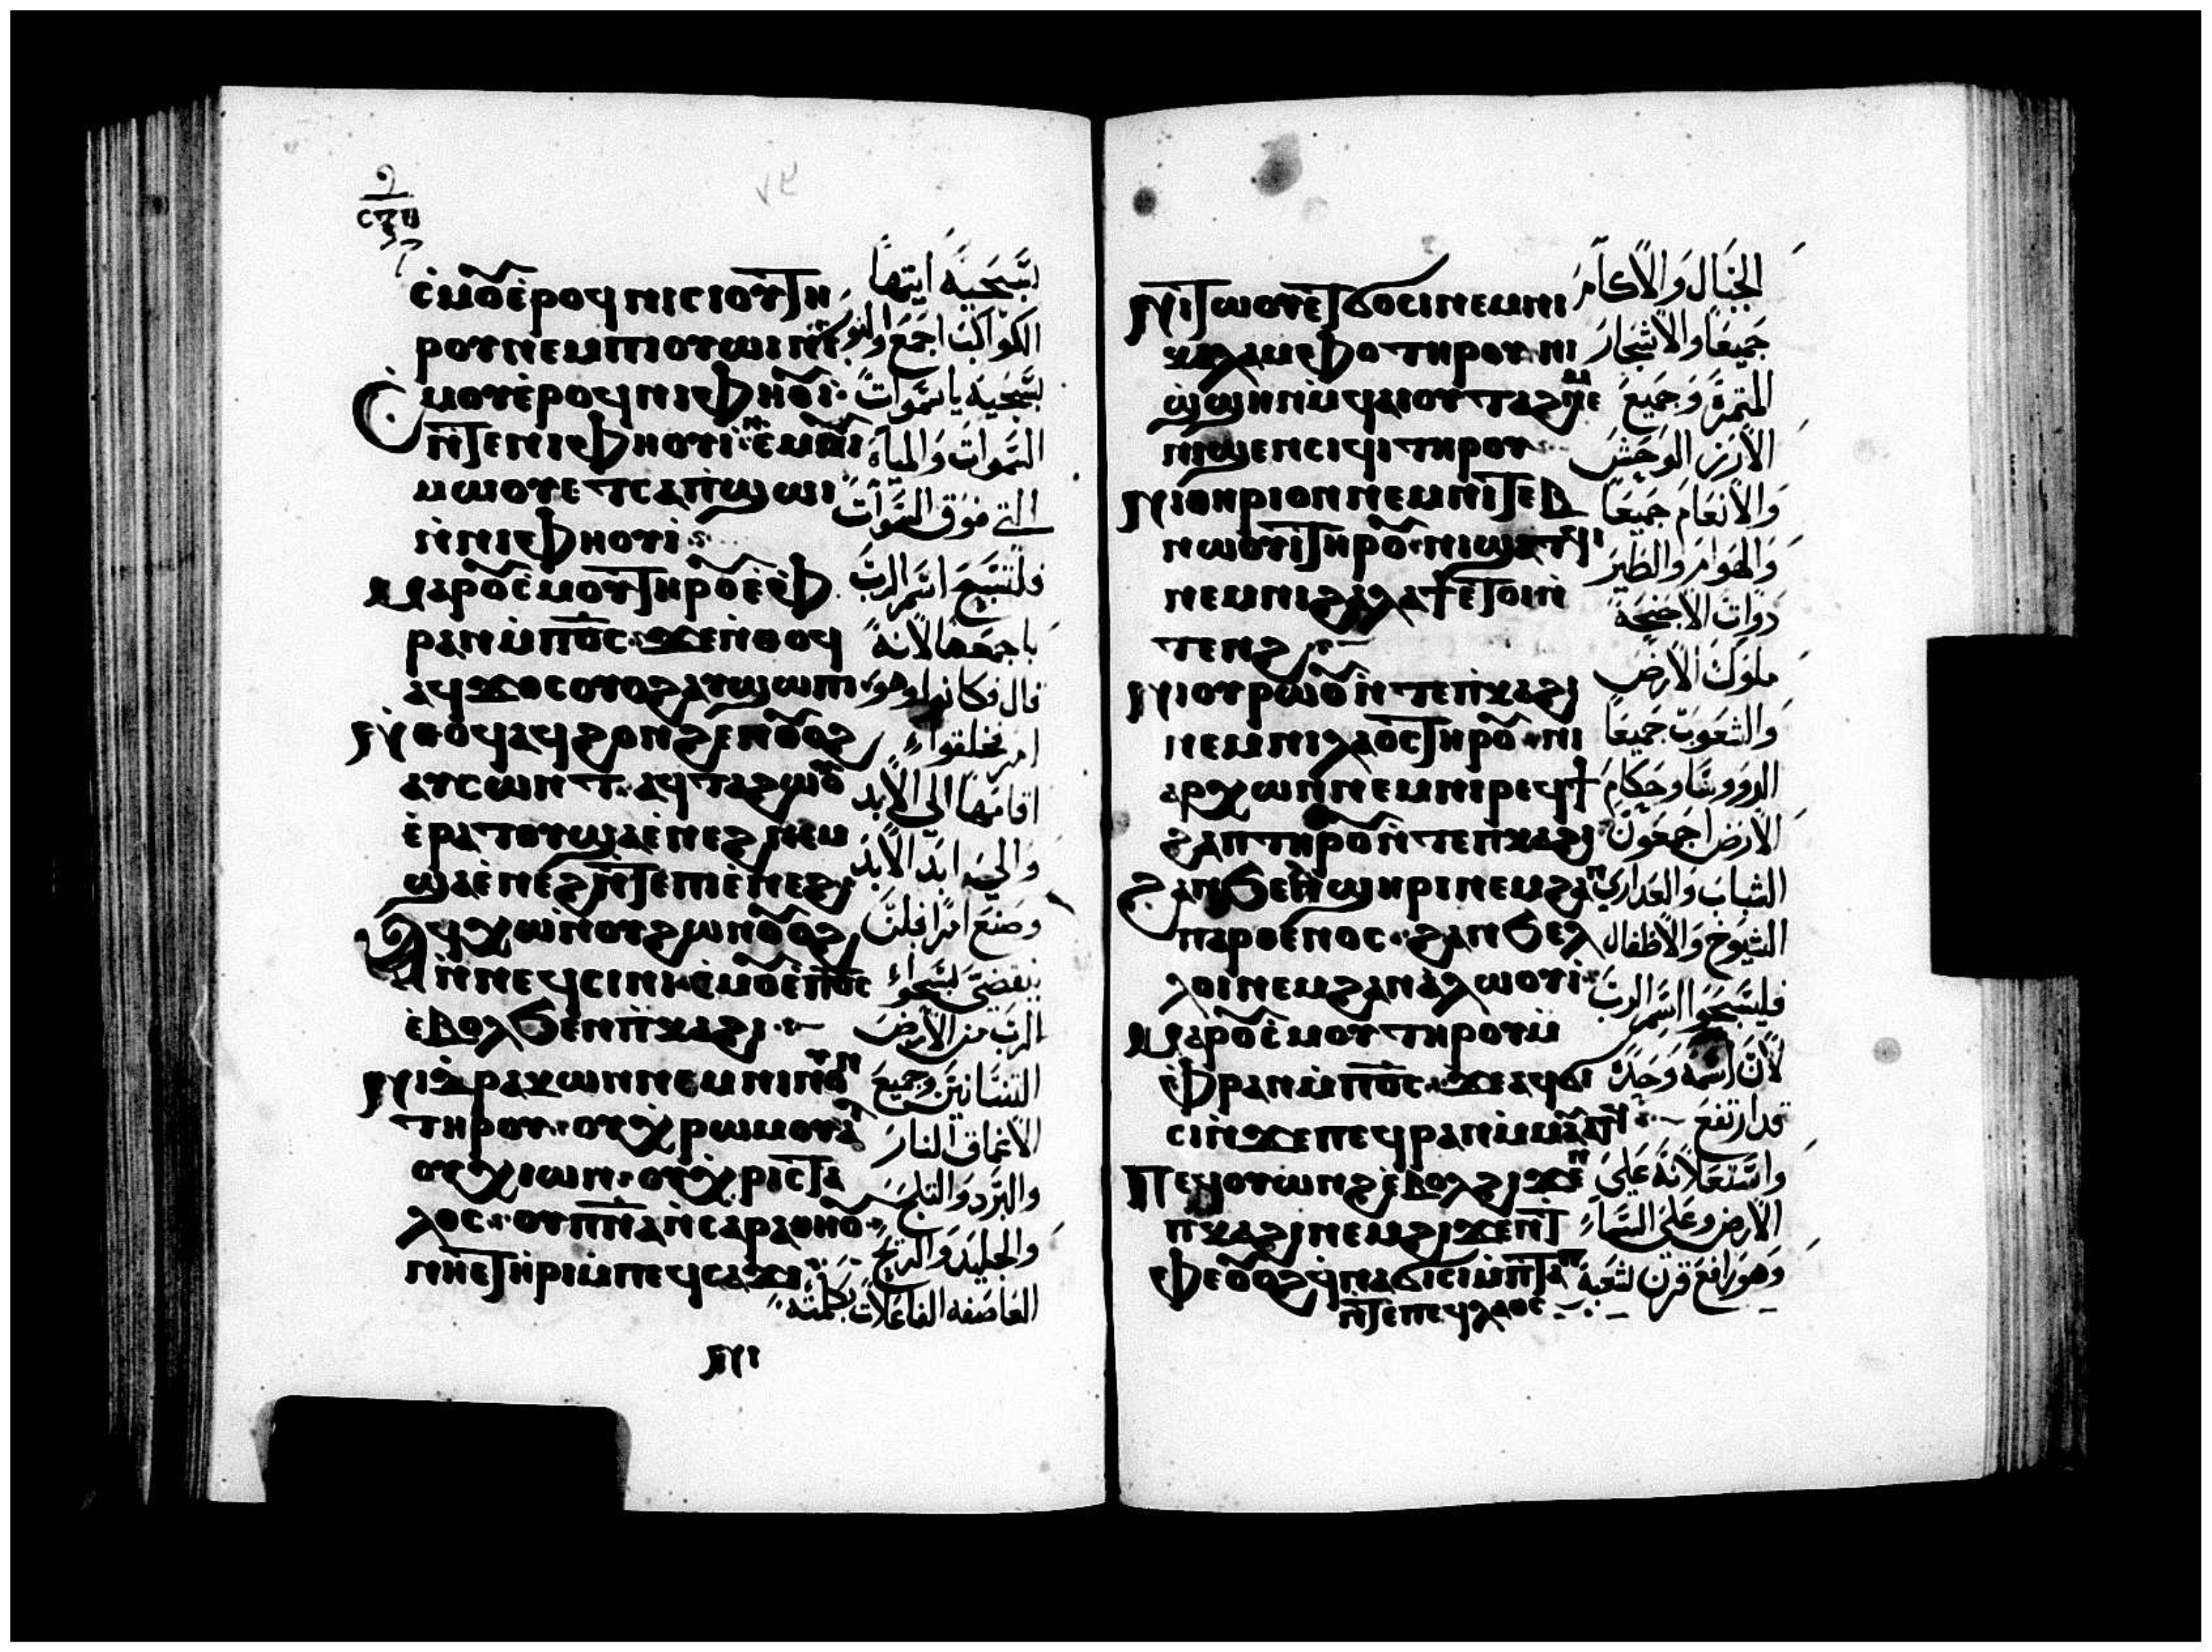 ⲥ̀ⲙⲟ̅ⲉ̀ⲣⲟϥ ⲛⲓⲥⲓⲟⲩⲧⲏ
ⲣⲟⲩ ⲛⲉⲙ ⲡⲓⲟⲩⲱⲓⲛⲓ
ⲥⲙⲟⲩⲉ̀ⲣⲟϥ ⲛⲓⲫⲏⲟ̅ⲓ̀
ⲛ̀ⲧⲉ ⲛⲓⲫⲏⲟⲩⲓ̀
ⲙⲱⲟⲩ ⲉⲧⲥⲁⲡϣⲱⲓ
ⲛ̀ⲛⲓⲫⲏⲟⲩⲓ̀
ⲙⲁⲣⲟ̅ⲥ̀ⲙⲟⲩ ⲧⲏⲣⲟ̅ ⲉ̀ⲫ
ⲣⲁⲛ ⲙ̀ⲡ⳪ ϫⲉ ⲛ̀ⲑⲟϥ
ⲁϥϫⲟⲥ ⲟⲩⲟϩ ⲁⲩϣⲱⲡⲓ
ⲛ̀ⲑⲟϥ ⲁϥϩⲟⲛϩⲉⲛ ⲟ̅ⲟϩ
ⲁⲩⲥⲱⲛⲧ ⲁϥⲧⲁϩⲱⲟ̅
ⲉ̀ⲣⲁⲧⲟⲩ ϣⲁ ⲉ̀ⲛⲉϩ ⲛⲉⲙ
ϣⲁ ⲉ̀ⲛⲉϩ ⲛ̀ⲧⲉ ⲡⲓⲉ̀ⲛⲉϩ
ⲁϥⲭⲱ ⲛ̀ⲟⲩϩⲱⲛ ⲟ̅ⲟϩ
ⲛ̀ⲛⲉϥⲥⲓⲛⲓ ⲥ̀ⲙⲟ̅ ⲉ̀ⲡ⳪
ⲉ̀ⲃⲟⲗϧⲉⲛ ⲡⲕⲁϩⲓ
ⲛⲓⲇⲣⲁⲕⲱⲛ ⲛⲉⲙ ⲛⲓⲛⲟⲩⲛ
ⲧⲏⲣⲟⲩ ⲟⲩⲭ̀ⲣⲱⲙ ⲟⲩⲁⲗ
ⲟⲩⲭⲓⲱⲛ ⲟⲩⲭ̀ⲣⲓⲥⲧⲁ
ⲗⲟⲥ ⲟⲩⲡⲛ̅ⲁ ⲛ̀ⲥⲁⲣⲁⲑⲏⲟ̅
ⲛⲏⲉⲧⲓ̀ⲣⲓ ⲙ̀ⲡⲉϥⲥⲁϫⲓ
ⲛⲓ
تسبحيه ايتها
الكواكب اجمع والنور
تسبحيه يا سموات
السموات والمياه
التي فوق السموات
فلتسبح اسم الرب
باجمعها لانه
قال فكانوا وهو
امر فخلقوا
اقامها الى الابد
والى ابد الابد
وصنع امرا فلن
ينقضى سبحوا
الرب من الارض
التنانين وجميع
الاعماق النار
والبرد والثلج
والجليد والريح
العاصفه الفاعلات كلمته
ⲛⲓⲧⲱⲟⲩ ⲉⲧϭⲟⲥⲓ ⲛⲉⲙ ⲛⲓ
ⲕⲁⲗⲁⲙⲫⲟ ⲧⲏⲣⲟⲩ ⲛⲓ
ϣ̀ϣⲏⲛ ⲙ̀ϥⲁⲓⲟⲩⲧⲁϩ ⲛⲉⲙ
ⲛⲓϣⲉⲛⲥⲓϥⲓ ⲧⲏⲣⲟⲩ
ⲛⲓⲑⲏⲣⲓⲟⲛ ⲛⲉⲙ ⲛⲓⲧⲉⲃ
ⲛⲱⲟⲩⲓ ⲧⲏⲣⲟ̅ ⲛⲓϭⲁⲧϥⲓ
ⲛⲉⲙ ⲛⲓϩⲁⲗⲁϯ ⲉⲧⲟⲓ ⲛ̀
ⲧⲉⲛϩ
ⲛⲓⲟⲩⲣⲱⲟ̅ ⲛ̀ⲧⲉ ⲡⲕⲁϩⲓ
ⲛⲉⲙ ⲛⲓⲗⲁⲟⲥ ⲧⲏⲣⲟ̅ ⲛⲓ
ⲁⲣⲭⲱⲛ ⲛⲉⲙ ⲛⲓⲣⲉϥϯ
ϩⲁⲡ ⲧⲏⲣⲟ̅ ⲛ̀ⲧⲉ ⲡⲕⲁϩⲓ
ϩⲁⲛϧⲉⲗϣⲏⲣⲓ ⲛⲉⲙ ϩⲁⲛ
ⲡⲁⲣⲑⲉⲛⲟⲥ ϩⲁⲛϧⲉⲗ
ⲗⲟⲓ ⲛⲉⲙ ϩⲁⲛⲁ̀ⲗⲱⲟⲩⲓ
ⲙⲁⲣⲟ̅ⲥ̀ⲙⲟⲩ ⲧⲏⲣⲟⲩ
ⲉ̀ⲫⲣⲁⲛ ⲙ̀ⲡ⳪ ϫⲉ ⲁϥϭⲓ
ⲥⲓ ⲛ̀ϫⲉ ⲡⲉϥⲣⲁⲛ ⲙ̀ⲙⲁⲩⲁⲧϥ
ⲡⲉϥⲟⲩⲱⲛϩ ⲉ̀ⲃⲟⲗ ϩⲓϫⲉⲛ
ⲡⲕⲁϩⲓ ⲛⲉⲙ ϩⲓϫⲉⲛ ⲧ
ⲫⲉ ⲟ̅ⲟϩ ϥ̀ⲛⲁϭⲓⲥⲓ ⲙ̀ⲡⲧⲁⲡ
ⲛ̀ⲧⲉ ⲡⲉϥⲗⲁⲟⲥ
الجبال والاكام
جميعا والاشجار
المثمرة وجميع
الارز الوحش
والانعام جميعا
والهوام والطير
ذوات الاجنحة
ملوك الارض
والشعوب جميعا
الرووسا وحكام
الارض اجمعون
الشباب والعذارى
الشيوخ والاطفال
فليسبحوا اسم الرب
لان اسمه وحده
قد ارتفع
واستعلانه على
الارض وعلى السماء
وهو رافع قرن لشعبه